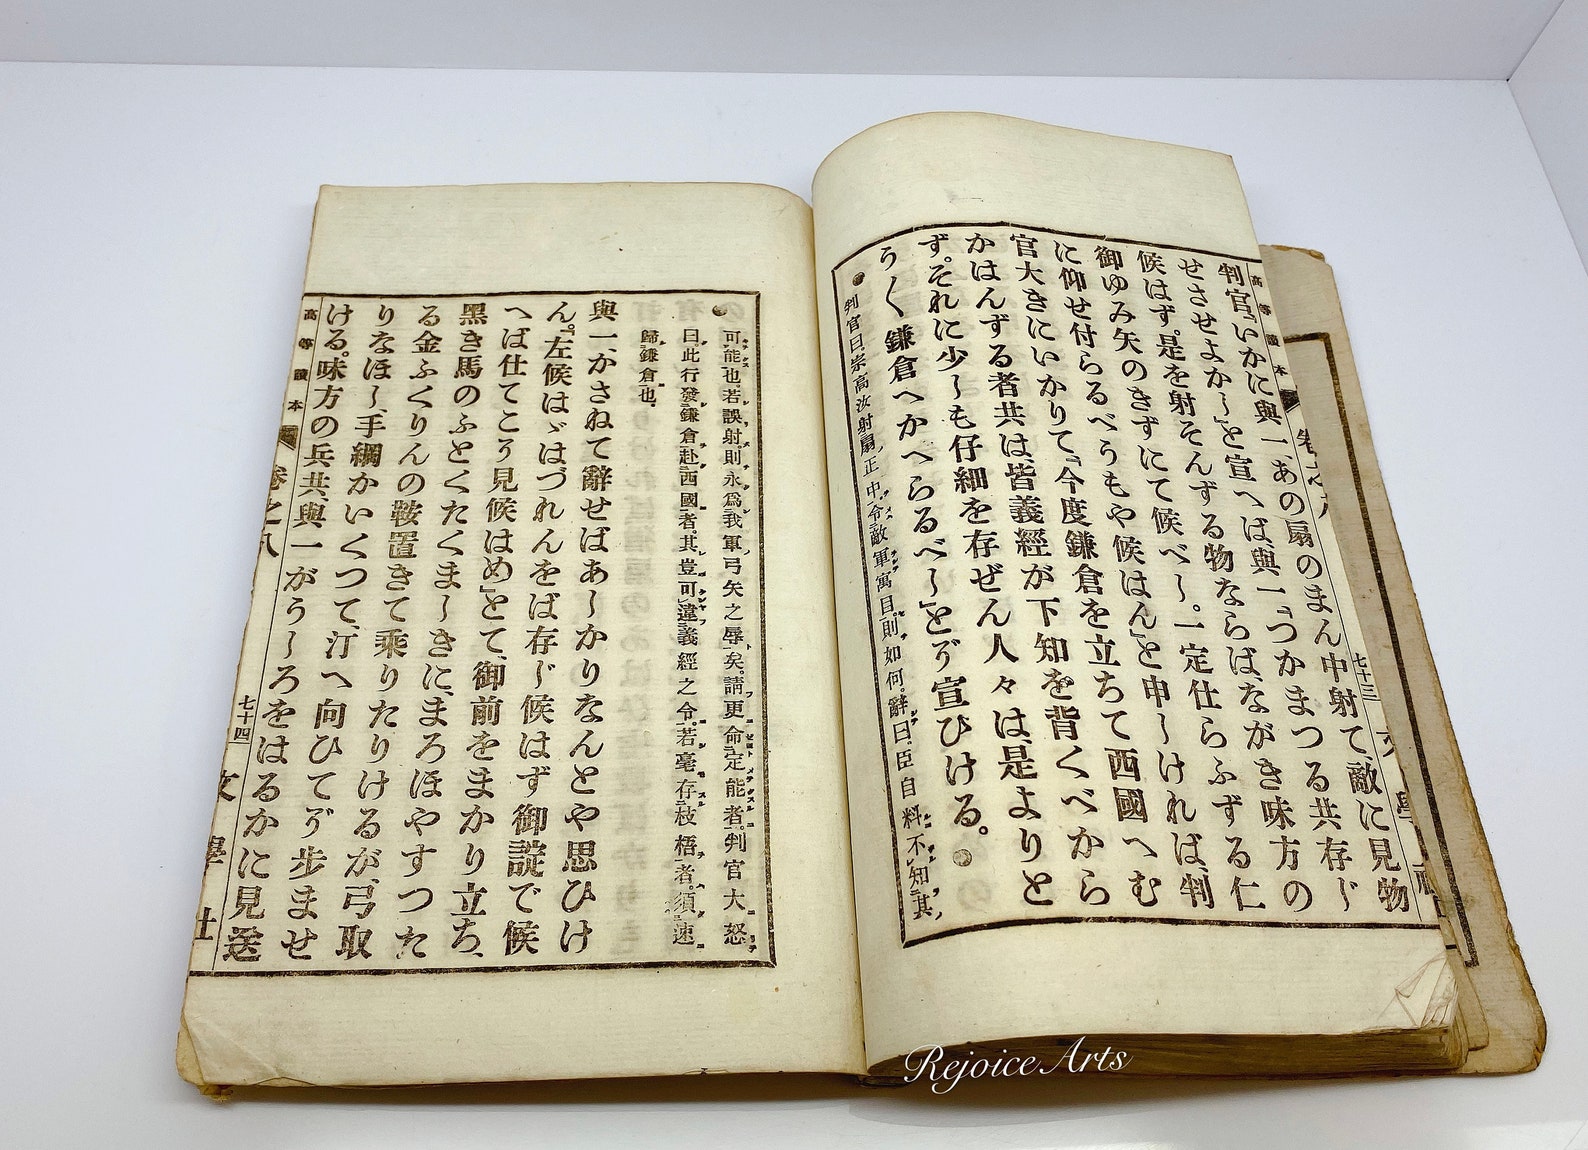 高等讀本
卷之八
七十三
文學社
判官「いかに與一、あの扇のまん中射て、敵に見物
せさせよかし」と宣へば、與一「つかまつる共存じ
候はず。是を射そんずる物ならば、ながき味方の
御ゆみ矢のきずにて候べし。一定仕らふずる仁
に仰せ付らるべうもや候はん」と申しければ、判
官大きにいかりて、「今度鎌倉を立ちて西國へむ
かはんずる者共は、皆義經が下知を背くべから
ず。それに少しも仔細を存ぜん人々は、是よりと
うく鎌倉へかへらるべし」とぞ宣ひける。
判官曰、宗高汝射扇正中、令敵軍寓目、則如何。辭曰、臣自料不知其
可能也。若誤射、則永爲我軍弓矢之辱矣。請更命定能者。判官大怒
曰、此行發鎌倉赴西國者、其豈可違義經之令。若毫存枝梧者、須速
歸鎌倉也。
與一、かさねて辭せばあしかりなんとや思ひけ
ん。「左候はゞはづれんをば存じ候はず御諚で候
へば仕てこそ見候はめ」とて、御前をまかり立ち、
黑き馬のふとくたくましきに、まろほやすつた
る金ふくりんの鞍置きて乘りたりけるが、弓取
りなほし、手綱かいくつて、汀へ向ひてぞ歩ませ
ける。味方の兵共、與一がうしろをはるかに見送
高等讀本
卷之八
七十四
文學社
Rejoice Arts